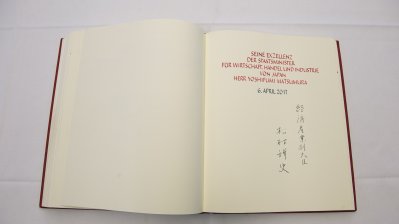 SEINE EXZELLENZ
DER STAATSMINISTER
FÜR WIRTSCHAFT, HANDEL UND INDUSTRIE
VON JAPAN
HERR YOSHIFUMI MATSUMURA
6. APRIL 2017
経済産業副大臣
松村祥史